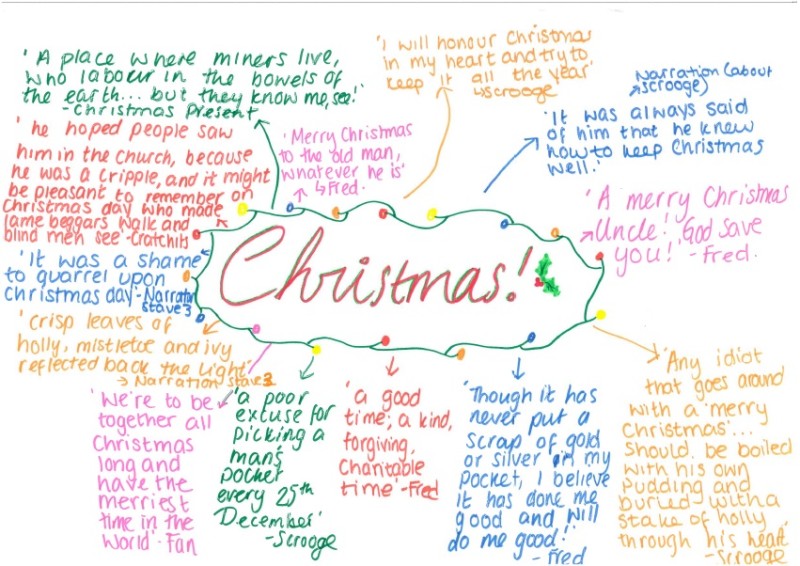 'A place where miners live,
who labour in the bowels of
the earth... but they know me, see!'
- Christmas Present
'I will honour Christmas
in my heart and try to
keep it all the year'
↳Scrooge
Narration (about
scrooge)
'It was always said
of him that he knew
how to keep Christmas
well.'
'Merry Christmas
to the old man,
whatever he is'
↳Fred.
'he hoped people saw
him in the church, because
he was a cripple, and it might
be pleasant to remember on
Christmas day who made
lame beggars walk and
blind men see' -Cratchits
'A merry Christmas
Uncle! God save
you!' -Fred.
Christmas!
'It was a shame
to quarrel upon
Christmas day'-Narration
stave 3
'crisp leaves of
holly, mistletoe and ivy
reflected back the light'
→ Narration stave 3
'We're to be
together all
Christmas
long and
have the
merriest
time in the
world'- Fan
'a poor
excuse for
picking a
mans
pocket
every 25th
December'
-Scrooge
'a good
time; a kind,
forgiving,
charitable
time'-Fred
'Though it has
never put a
scrap of gold
or silver in my
pocket, I believe
it has done me
good and will
do me good!'
- Fred
'Any idiot
that goes around
with a 'merry
Christmas'...
should be boiled
with his own
pudding and
buried with a
stake of holly
through his heart'
-Scrooge